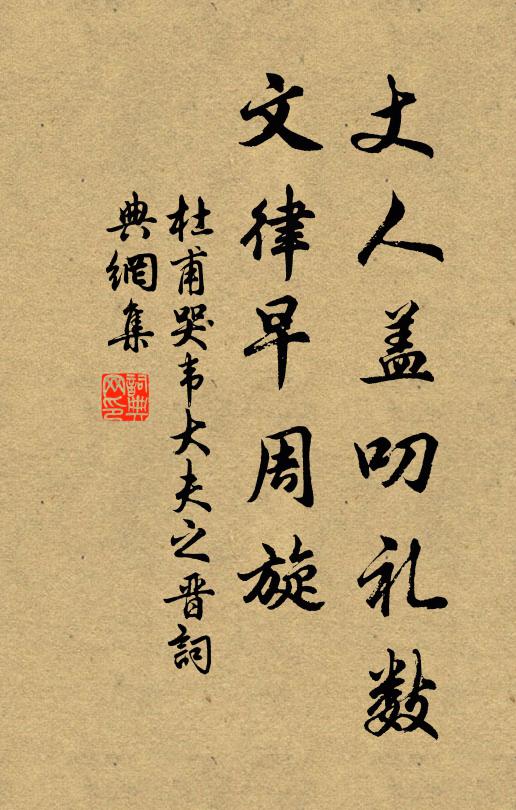 丈人盖叨礼数
文律早周旋
杜甫哭韦大夫之晋詞
典網集
詞典网印